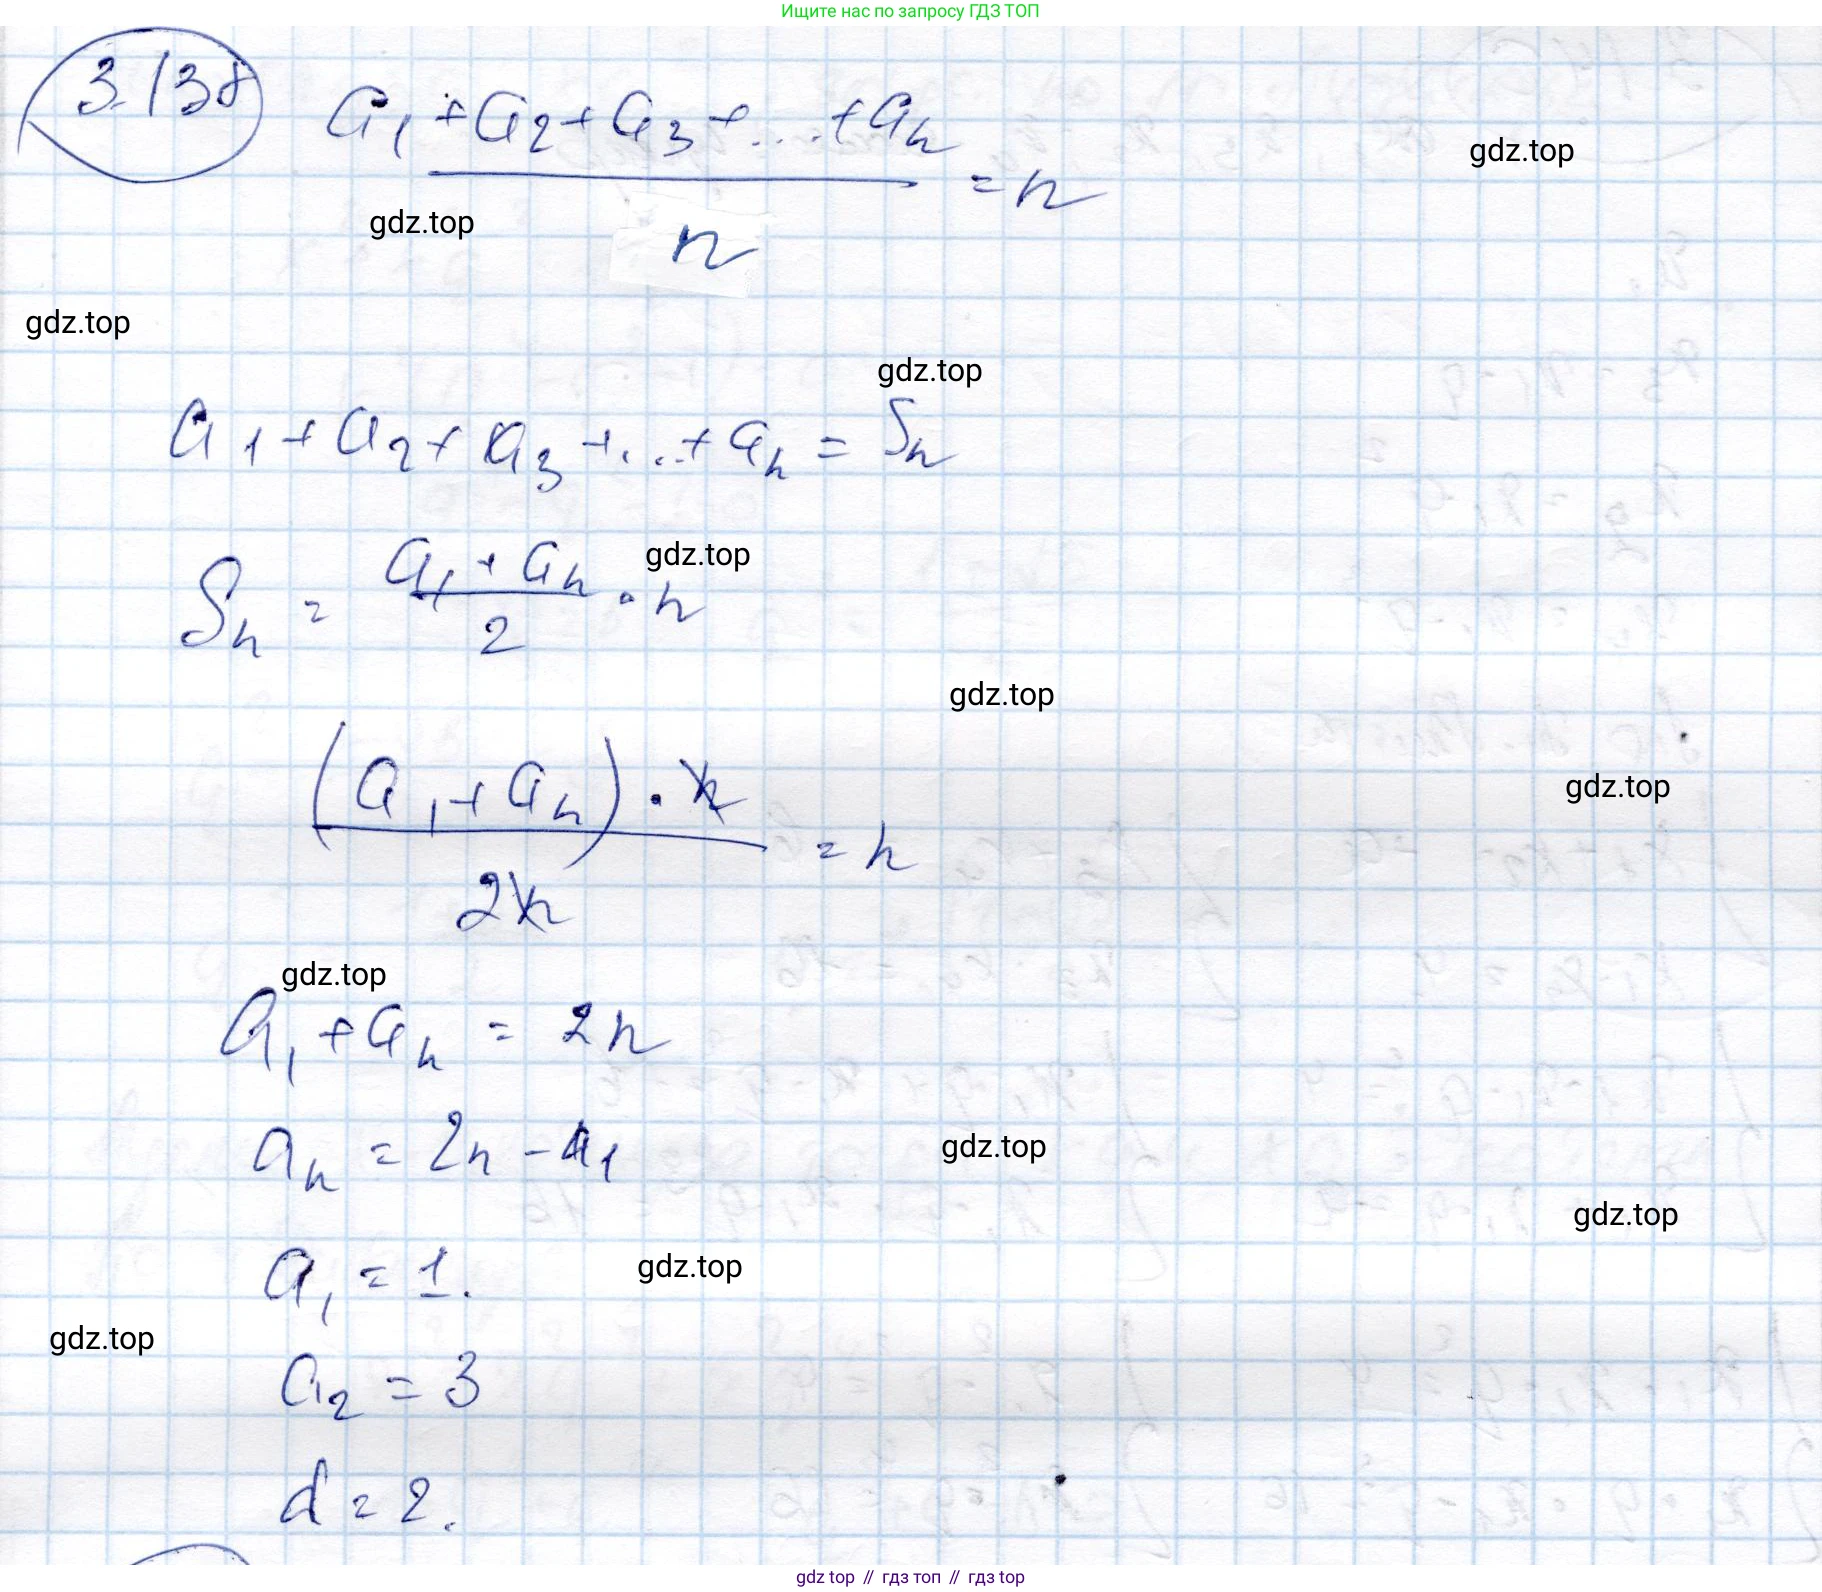 Ищите нас по запросу ГДЗ ТОП
3.138
a₁ + a₂ + a₃ + ... + aₙ
= n
gdz.top
gdz.top
n
gdz.top
gdz.top
a₁ + a₂ + a₃ + ... + aₙ = Sₙ
Sₙ = (a₁ + aₙ)/2 · n
gdz.top
gdz.top
(a₁ + aₙ) · n
gdz.top
= n
2n
gdz.top
a₁ + aₙ = 2n
aₙ = 2n - a₁
gdz.top
gdz.top
a₁ = 1.
gdz.top
gdz.top
a₂ = 3
d = 2.
gdz.top // гдз топ // гдз top